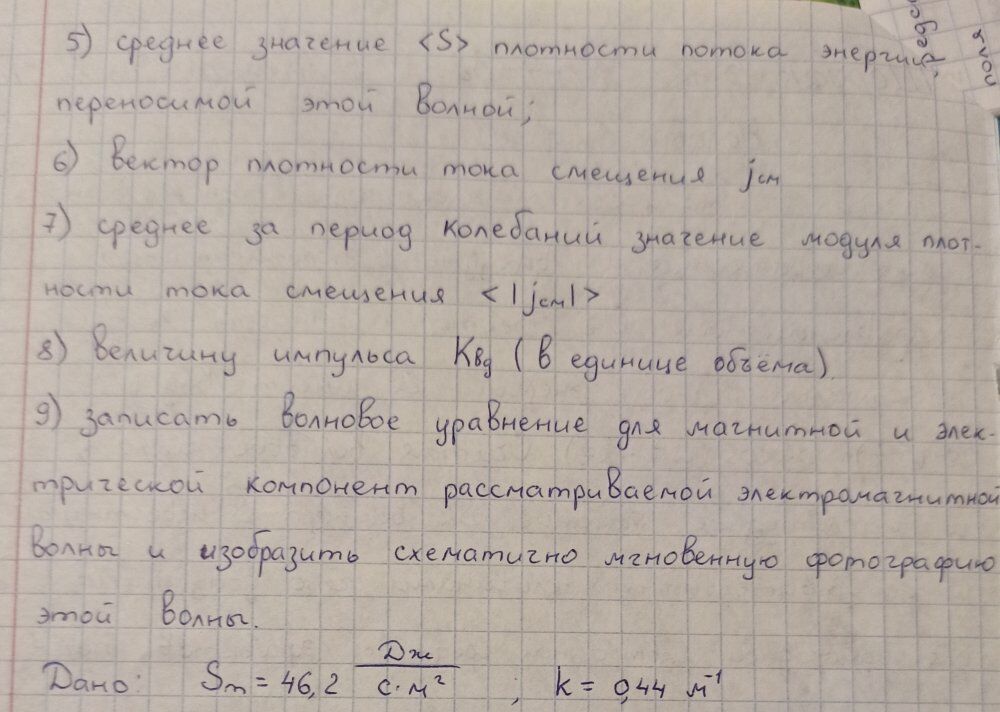 5) среднее значение <S> плотности потока энергии,
переносимой этой волной;
6) вектор плотности тока смещения jсм
7) среднее за период колебаний значение модуля плот-
ности тока смещения <|jсм|>
8) величину импульса Kед (в единице объёма).
9) записать волновое уравнение для магнитной и элек-
трической компонент рассматриваемой электромагнитной
волны и изобразить схематично мгновенную фотографию
этой волны.
Дано: Sm = 46,2 Дж / с·м² ; k = 0,44 м⁻¹